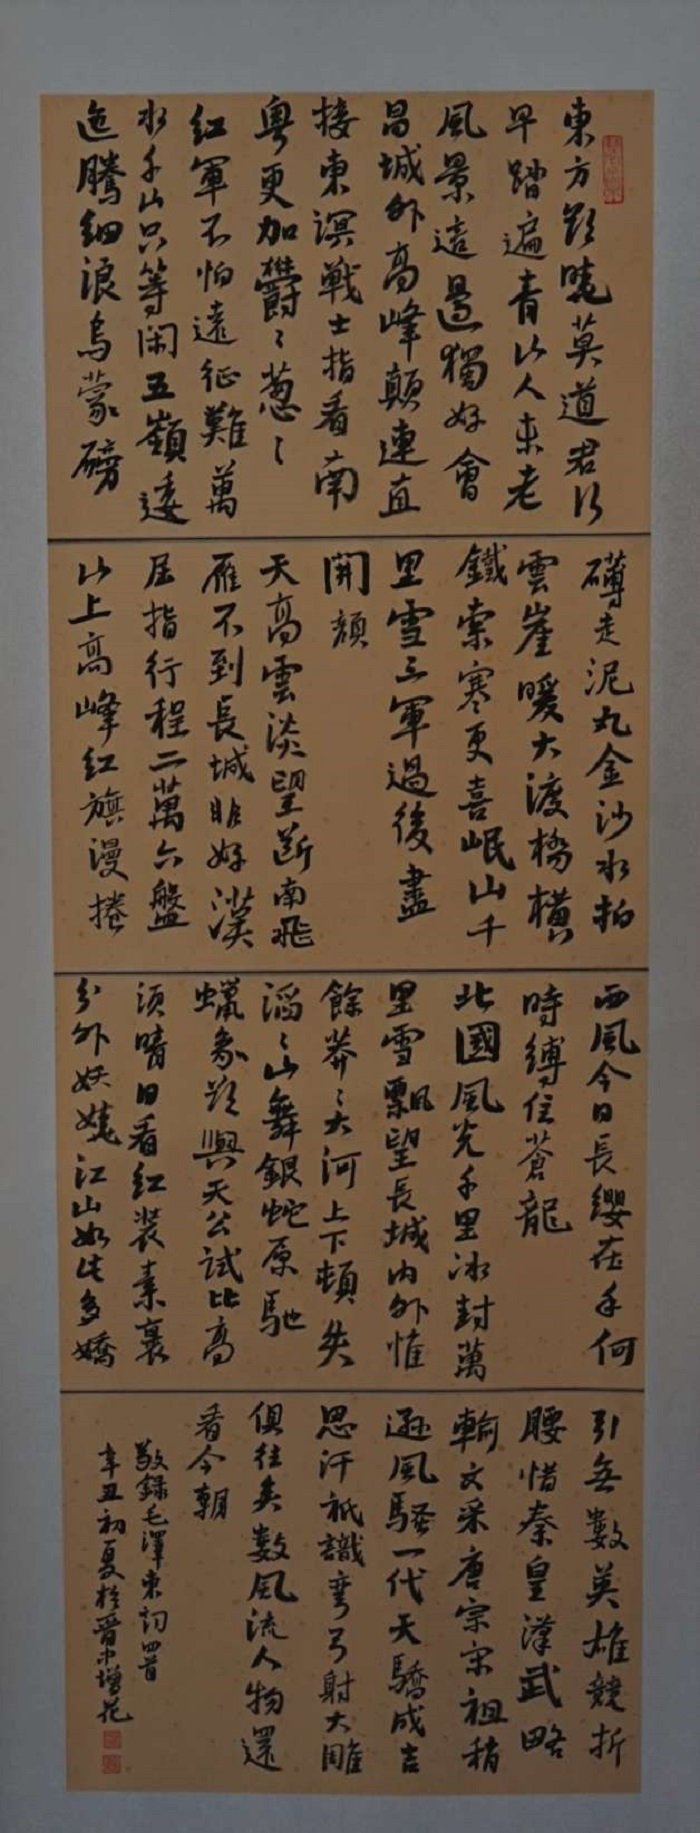 東方欲曉莫道君行
早踏遍青山人未老
風景這邊獨好會
昌城外高峰顛連直
接東溟戰士指看南
粵更加鬱々葱々
紅軍不怕遠征難萬
水千山只等閑五嶺逶
迤騰細浪烏蒙磅
礴走泥丸金沙水拍
雲崖暖大渡橋橫
鐵索寒更喜岷山千
里雪三軍過後盡
開顏
天高雲淡望斷南飛
雁不到長城非好漢
屈指行程二萬六盤
山上高峰紅旗漫捲
西風今日長纓在手何
時縛住蒼龍
北國風光千里冰封萬
里雪飄望長城內外惟
餘莽々大河上下頓失
滔々山舞銀蛇原馳
蠟象欲與天公試比高
須晴日看紅裝素裹
分外妖嬈江山如此多嬌
引無數英雄競折
腰惜秦皇漢武略
輸文采唐宗宋祖稍
遜風騷一代天驕成吉
思汗祇識彎弓射大雕
俱往矣數風流人物還
看今朝
敬錄毛澤東詞四首
辛丑初夏於晉中增花